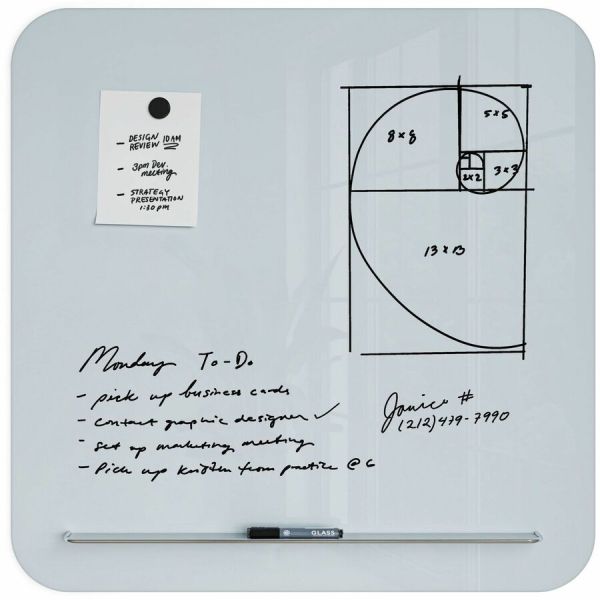 - DESIGN
REVIEW 10AM
- 3pm Dev.
meeting
- STRATEGY
PRESENTATION
1:30 pm
8x8
5x5
2x2
3x3
13 x 13
Monday To-Do
- pick up business cards
- contact graphic designer ✓
- set up marketing meeting
- Pick up Kristen from practice @ 6
Janice #
(212) 479-7990
GLASS